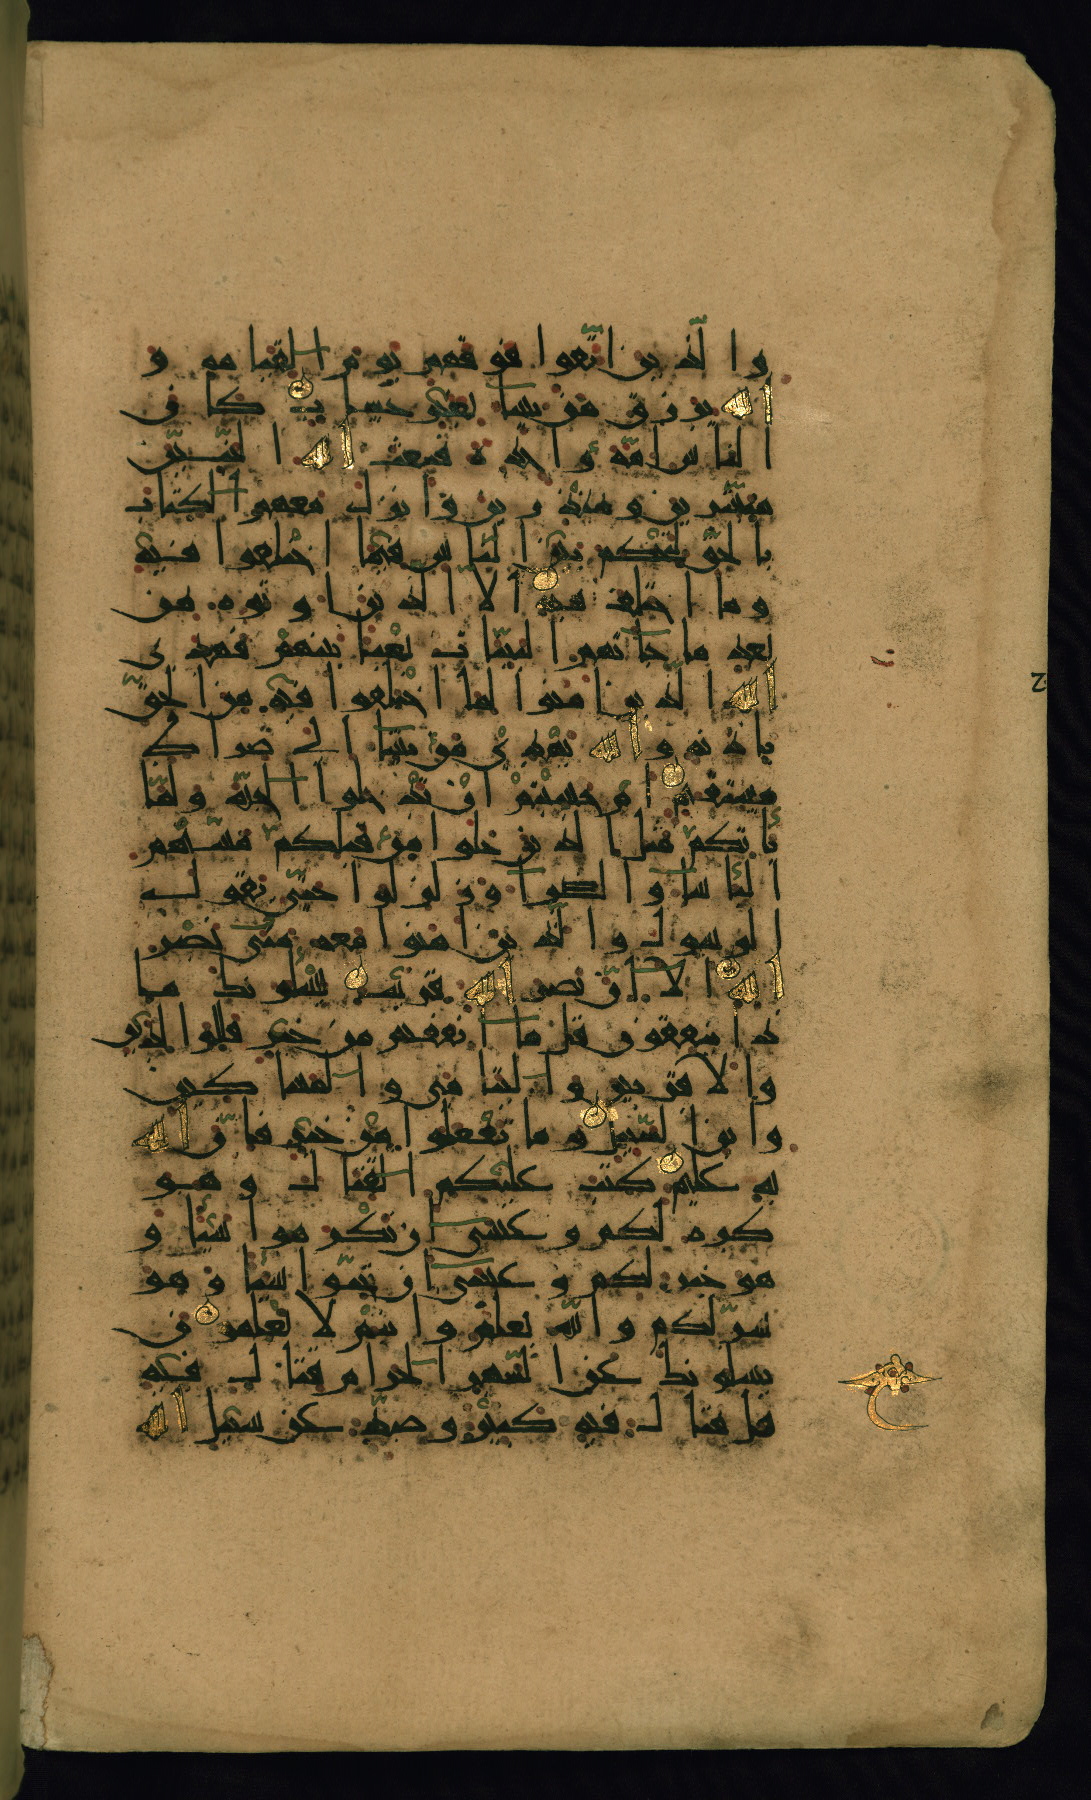 وا لذ ين ا تقوا فو قهم يو م ا لقيا مه و
ا لله ير ز ق من يشا بغير حسا ب كا ن
ا لنا س ا مه وا حد ة فبعث ا لله ا لنبيين
مبشر ين و منذ ر ين وا نز ل معهم ا لكتاب
با لحق ليحكم بين ا لنا س فيما ا ختلفوا فيه
و ما ا ختلف فيه ا لا ا لذ ين ا و توه من
بعد ما جا تهم ا لبينا ت بغيا بينهم فهد ى
ا لله ا لذ ين ا منوا لما ا ختلفوا فيه من ا لحق
با ذ نه و ا لله يهد ى من يشا ا لى صر ا ط
مستقيم ا م حسبتم ا ن تد خلو ا ا لجنة و لما
يا تكم مثل ا لذ ين خلو ا من قبلكم مستهم
ا لبا سا وا لضرا و ز لز لوا حتى يقو ل
ا لر سو ل وا لذ ين ا منوا معه متى نصر
ا لله ا لا ا ن نصر ا لله قريب يسلو نك ما
ذ ا ينفقون قل ما ا نفقتم من خير فللوا لدين
وا لا قر بين وا ليتا مى وا لمسا كين
وا بن ا لسبيل و ما تفعلوا من خير فا ن ا لله
به عليم كتب عليكم ا لقتا ل و هو
كره لكم و عسى ا ن تكر هوا شيا و
هو خير لكم و عسى ا ن تحبوا شيا و هو
شر لكم وا لله يعلم وا نتم لا تعلمو ن
يسلو نك عن ا لشهر ا لحرا م قتا ل فيه
قل قتا ل فيه كبير و صد عن سبيل ا لله